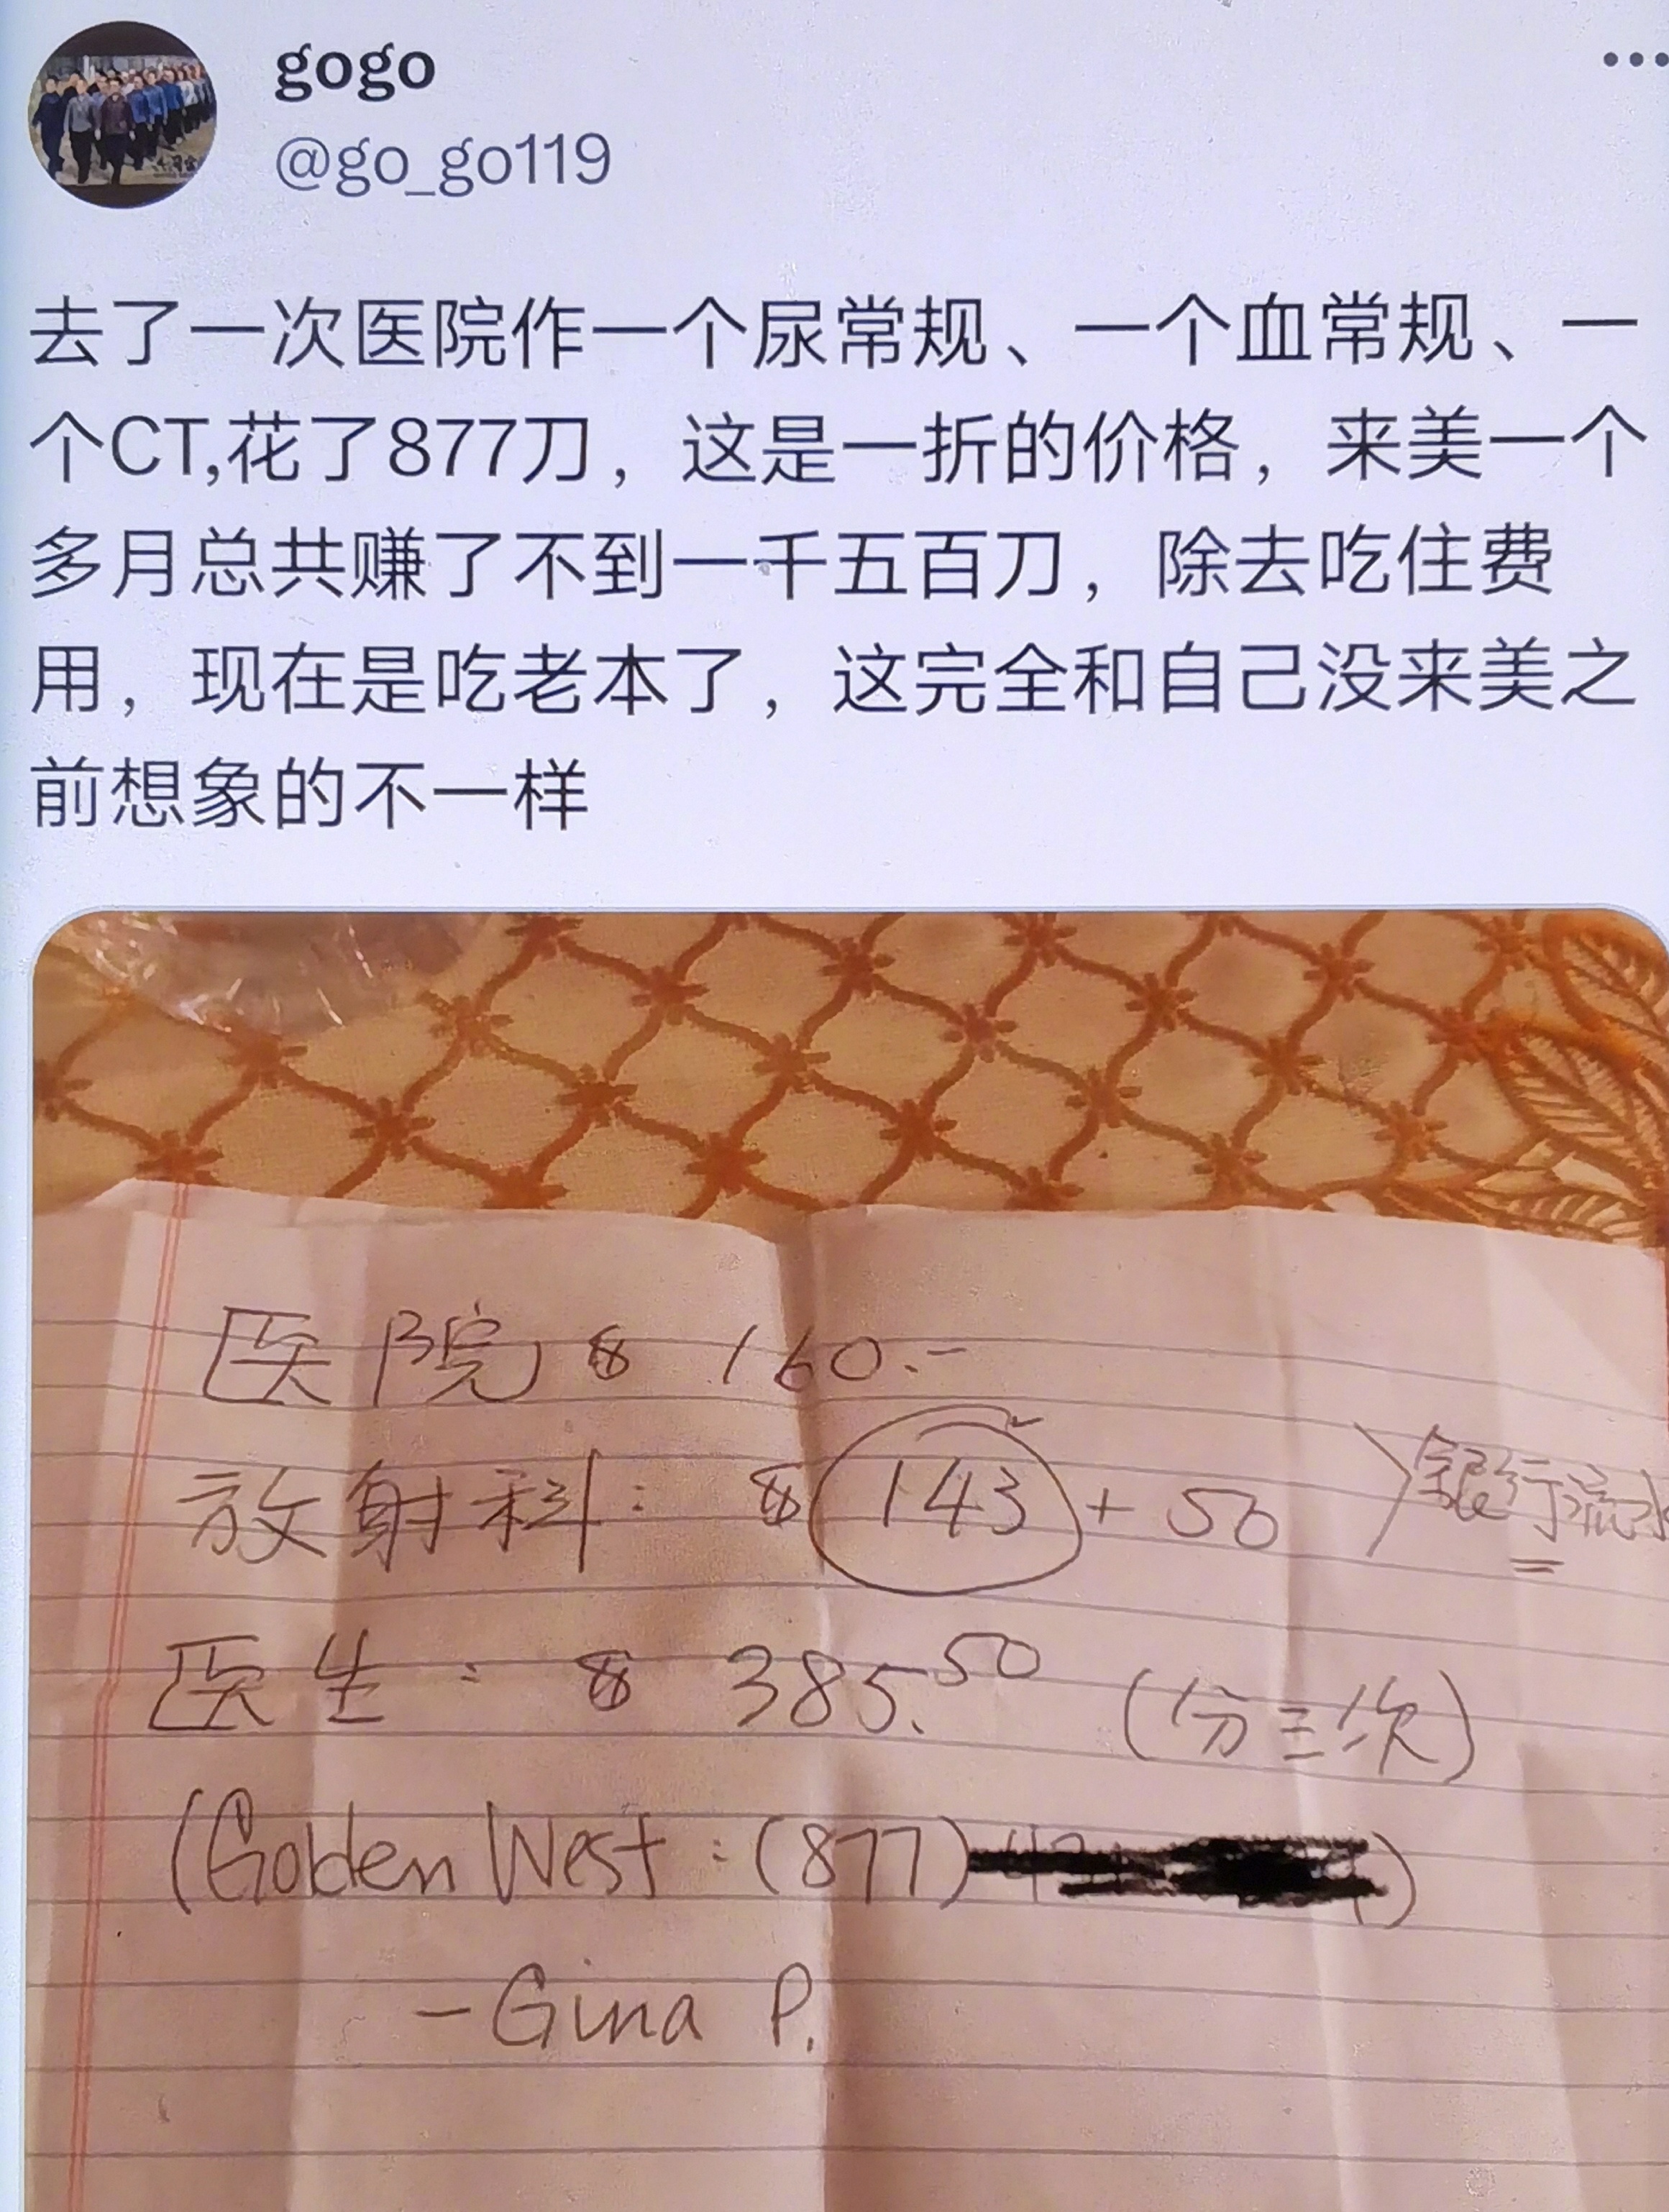 gogo
@go_go119
去了一次医院作一个尿常规、一个血常规、一
个CT,花了877刀，这是一折的价格，来美一个
多月总共赚了不到一千五百刀，除去吃住费
用，现在是吃老本了，这完全和自己没来美之
前想象的不一样
医院 $ 160.-
放射科: $ 143 + 50 银行流水
医生: $ 385.50 (分三次)
(Golden West: (877)
- Gina P.